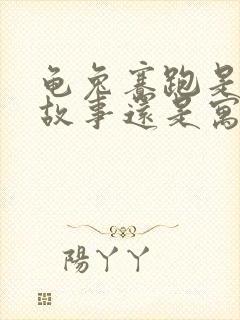 龟兔赛跑是
故事还是寓
陽丫丫